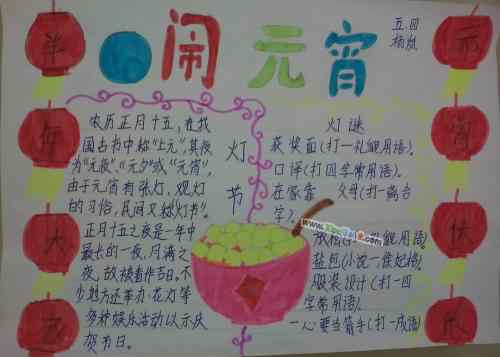 闹元宵
五.四
羊
年
大
灯
节
农历正月十五,在我
国古书中称"上元",其夜
为"元夜"、"元夕"或"元宵",
由于元宵有张灯,观灯
的习俗,民间又称"灯节"。
正月十五之夜是一年中
最长的一夜,月满之
夜,故被看作吉日,不
少地方还举办花灯等
多种娱乐活动以示庆
贺节日。
灯谜
获奖面(打一礼貌用语)。
口译(打四字常用语)。
在家靠 父母(打一
字)。
礼貌用语)
盐包(小说一
服装设计(打一四
字常用语)。
一心要当箭牛(打一成语)
元
宵
快
乐